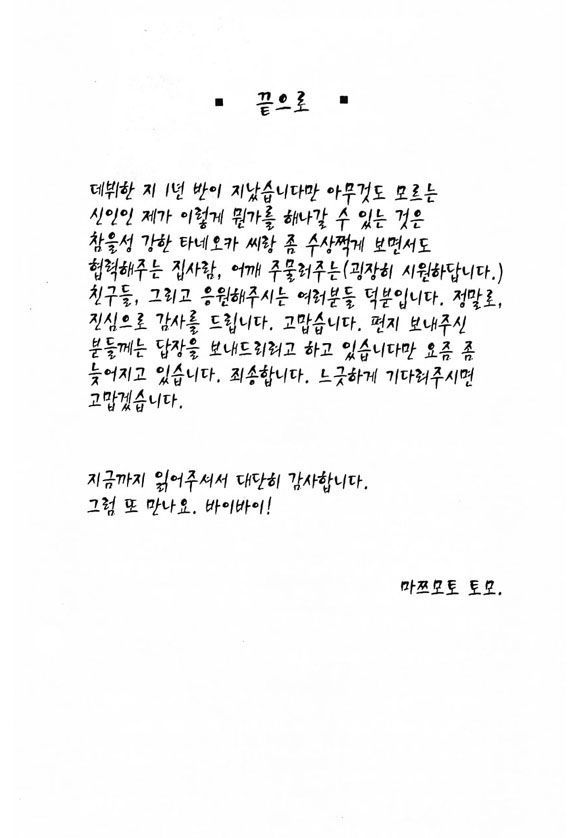 ■ 끝으로 ■
데뷔한 지 1년 반이 지났습니다만 아무것도 모르는
신인인 제가 이렇게 뭔가를 해나갈 수 있는 것은
참을성 강한 타네오카 씨랑 좀 수상쩍게 보면서도
협력해주는 집사람, 어깨 주물러주는(굉장히 시원하답니다.)
친구들, 그리고 응원해주시는 여러분들 덕분입니다. 정말로,
진심으로 감사를 드립니다. 고맙습니다. 편지 보내주신
분들께는 답장을 보내드리려고 하고 있습니다만 요즘 좀
늦어지고 있습니다. 죄송합니다. 느긋하게 기다려주시면
고맙겠습니다.
지금까지 읽어주셔서 대단히 감사합니다.
그럼 또 만나요. 바이바이!
마쯔모토 토모.